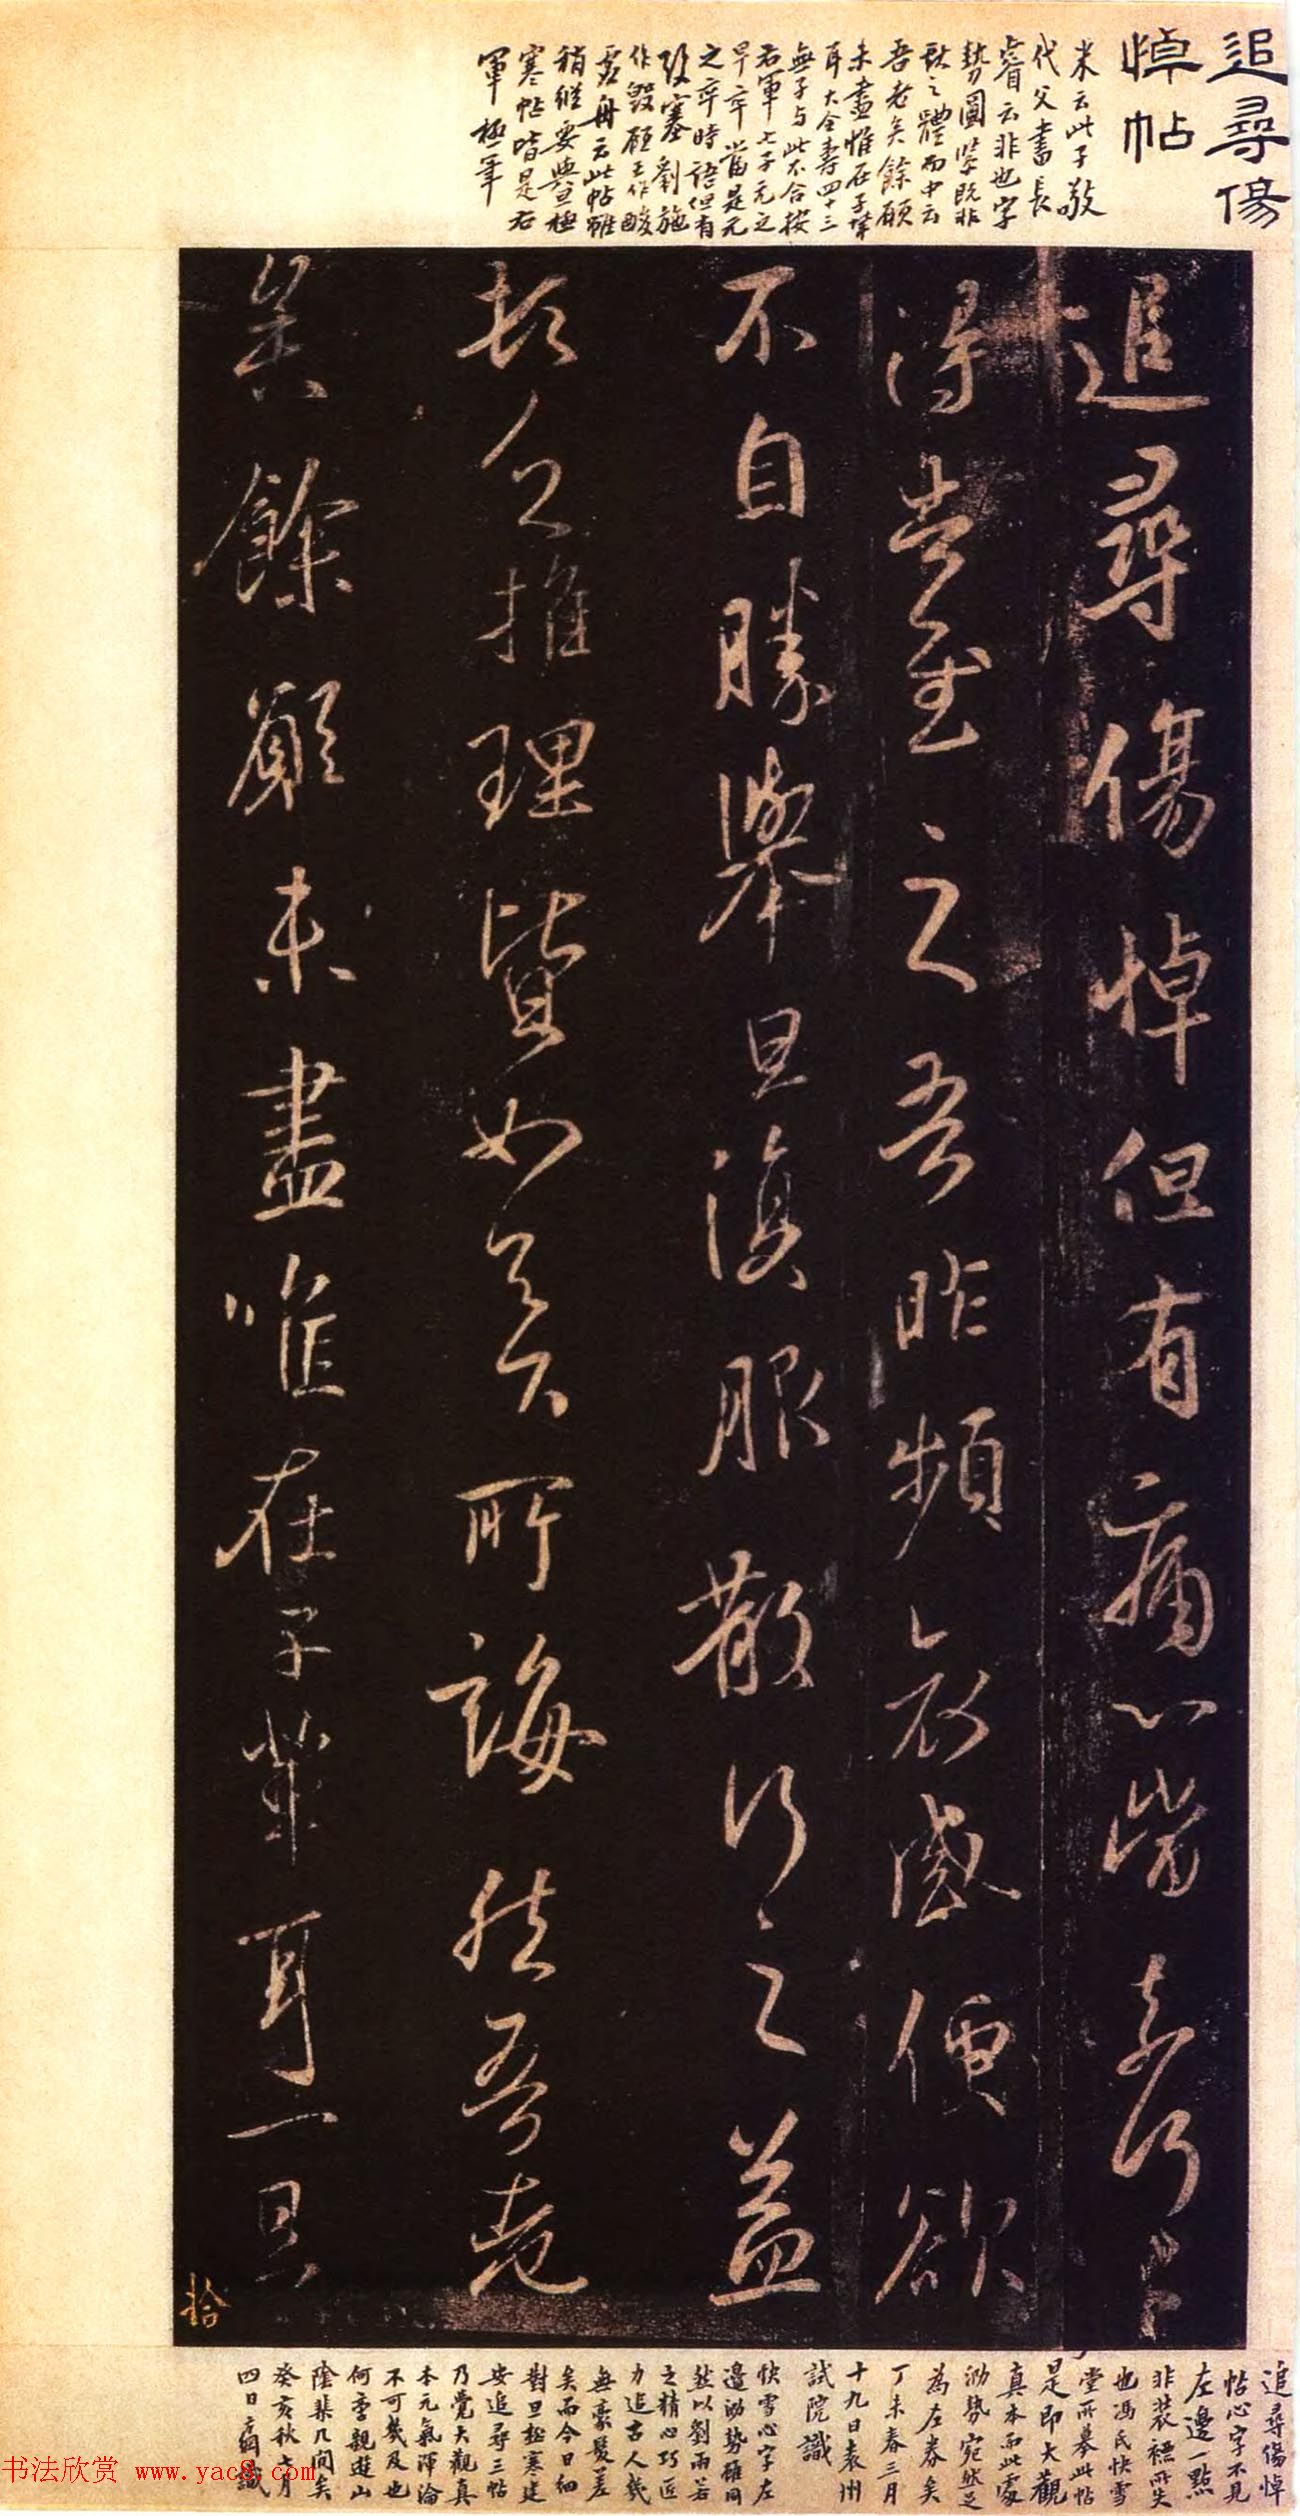 追尋傷
悼帖
米云此子敬
代父書長
睿云非也字
勢圓緊既非
獻之體而中云
吾老矣餘願
未盡惟在子輩
耳大令壽四十三
無子與此不合按
右軍七子元之
早卒當是元
之卒時語但有
作毀顧王作酸
虛舟云此帖雖
稍縱要與極
寒帖皆是右
軍極筆
追尋傷悼但有痛心當奈何奈何
得告慰之吾昨頻哀感便欲
不自勝舉旦復服散行之益
頓乏推理皆如足下所誨然吾老
矣餘願未盡唯在子輩耳一旦
拾
追尋傷悼
帖心字不見
左邊一點
非裝褾所失
也馮氏快雪
堂所摹此帖
是即大觀
真本而此處
泐勢宛然足
為左券矣
丁未春三月
十九日袁州
試院識
快雪心字左
邊泐勢雖同
然以劉雨若
之精心巧匠
力追古人幾
無豪髮差
矣而今日細
對旦極寒建
安追尋三帖
乃覺大觀真
本元氣渾淪
不可幾及也
何季親遊山
陰棐几間矣
癸亥秋七月
四日
书法欣赏 www.yac8.com